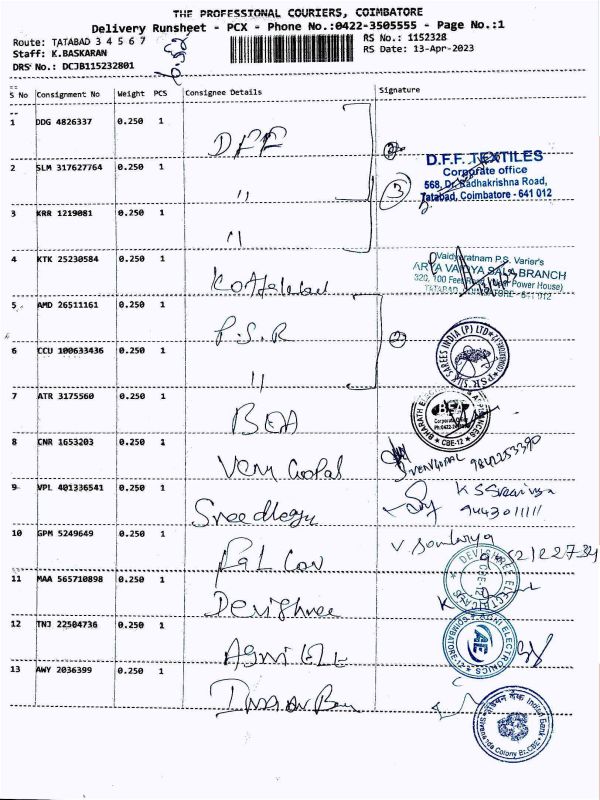 THE PROFESSIONAL COURIERS, COIMBATORE
Delivery Runsheet - PCX - Phone No.:0422-3505555 - Page No.:1
Route: TATABAD 3 4 5 6 7
RS No.: 1152328
Staff: K.BASKARAN
RS Date: 13-Apr-2023
DRS No.: DCJB115232801
S No Consignment No Weight PCS Consignee Details Signature
1 DDG 4826337 0.250 1 DFF
D.F.F. TEXTILES
Corporate office
568, Dr. Radhakrishna Road,
Tatabad, Coimbatore - 641 012
2 SLM 317627764 0.250 1 "
3
3 KRR 1219081 0.250 1 "
4 KTK 25230584 0.250 1
Vaidyaratnam P.S. Varier's
ARYA VAIDYA SALA BRANCH
320, 100 Feet Road (Near Power House)
TATABAD, COIMBATORE - 641 012
5 AMD 26511161 0.250 1 P.S.R
2
PSR SILK SAREES INDIA (P) LTD
6 CCU 100633436 0.250 1 "
7 ATR 3175560 0.250 1 BEA
BEA
Corporate Office
CBE-12
8 CNR 1653203 0.250 1 Venu Gopal
VENUGOPAL
9 VPL 401336541 0.250 1
9443011111
10 GPM 5249649 0.250 1
V
11 MAA 565710898 0.250 1 Devishree
DEVISHREE
CBE-12
12 TNJ 22504736 0.250 1 Agni ELE
AGNI ELECTRONICS
AE
COIMBATORE-12
13 AWY 2036399 0.250 1
इंडियन बैंक Indian Bank
Sivananda Colony Br. CBE